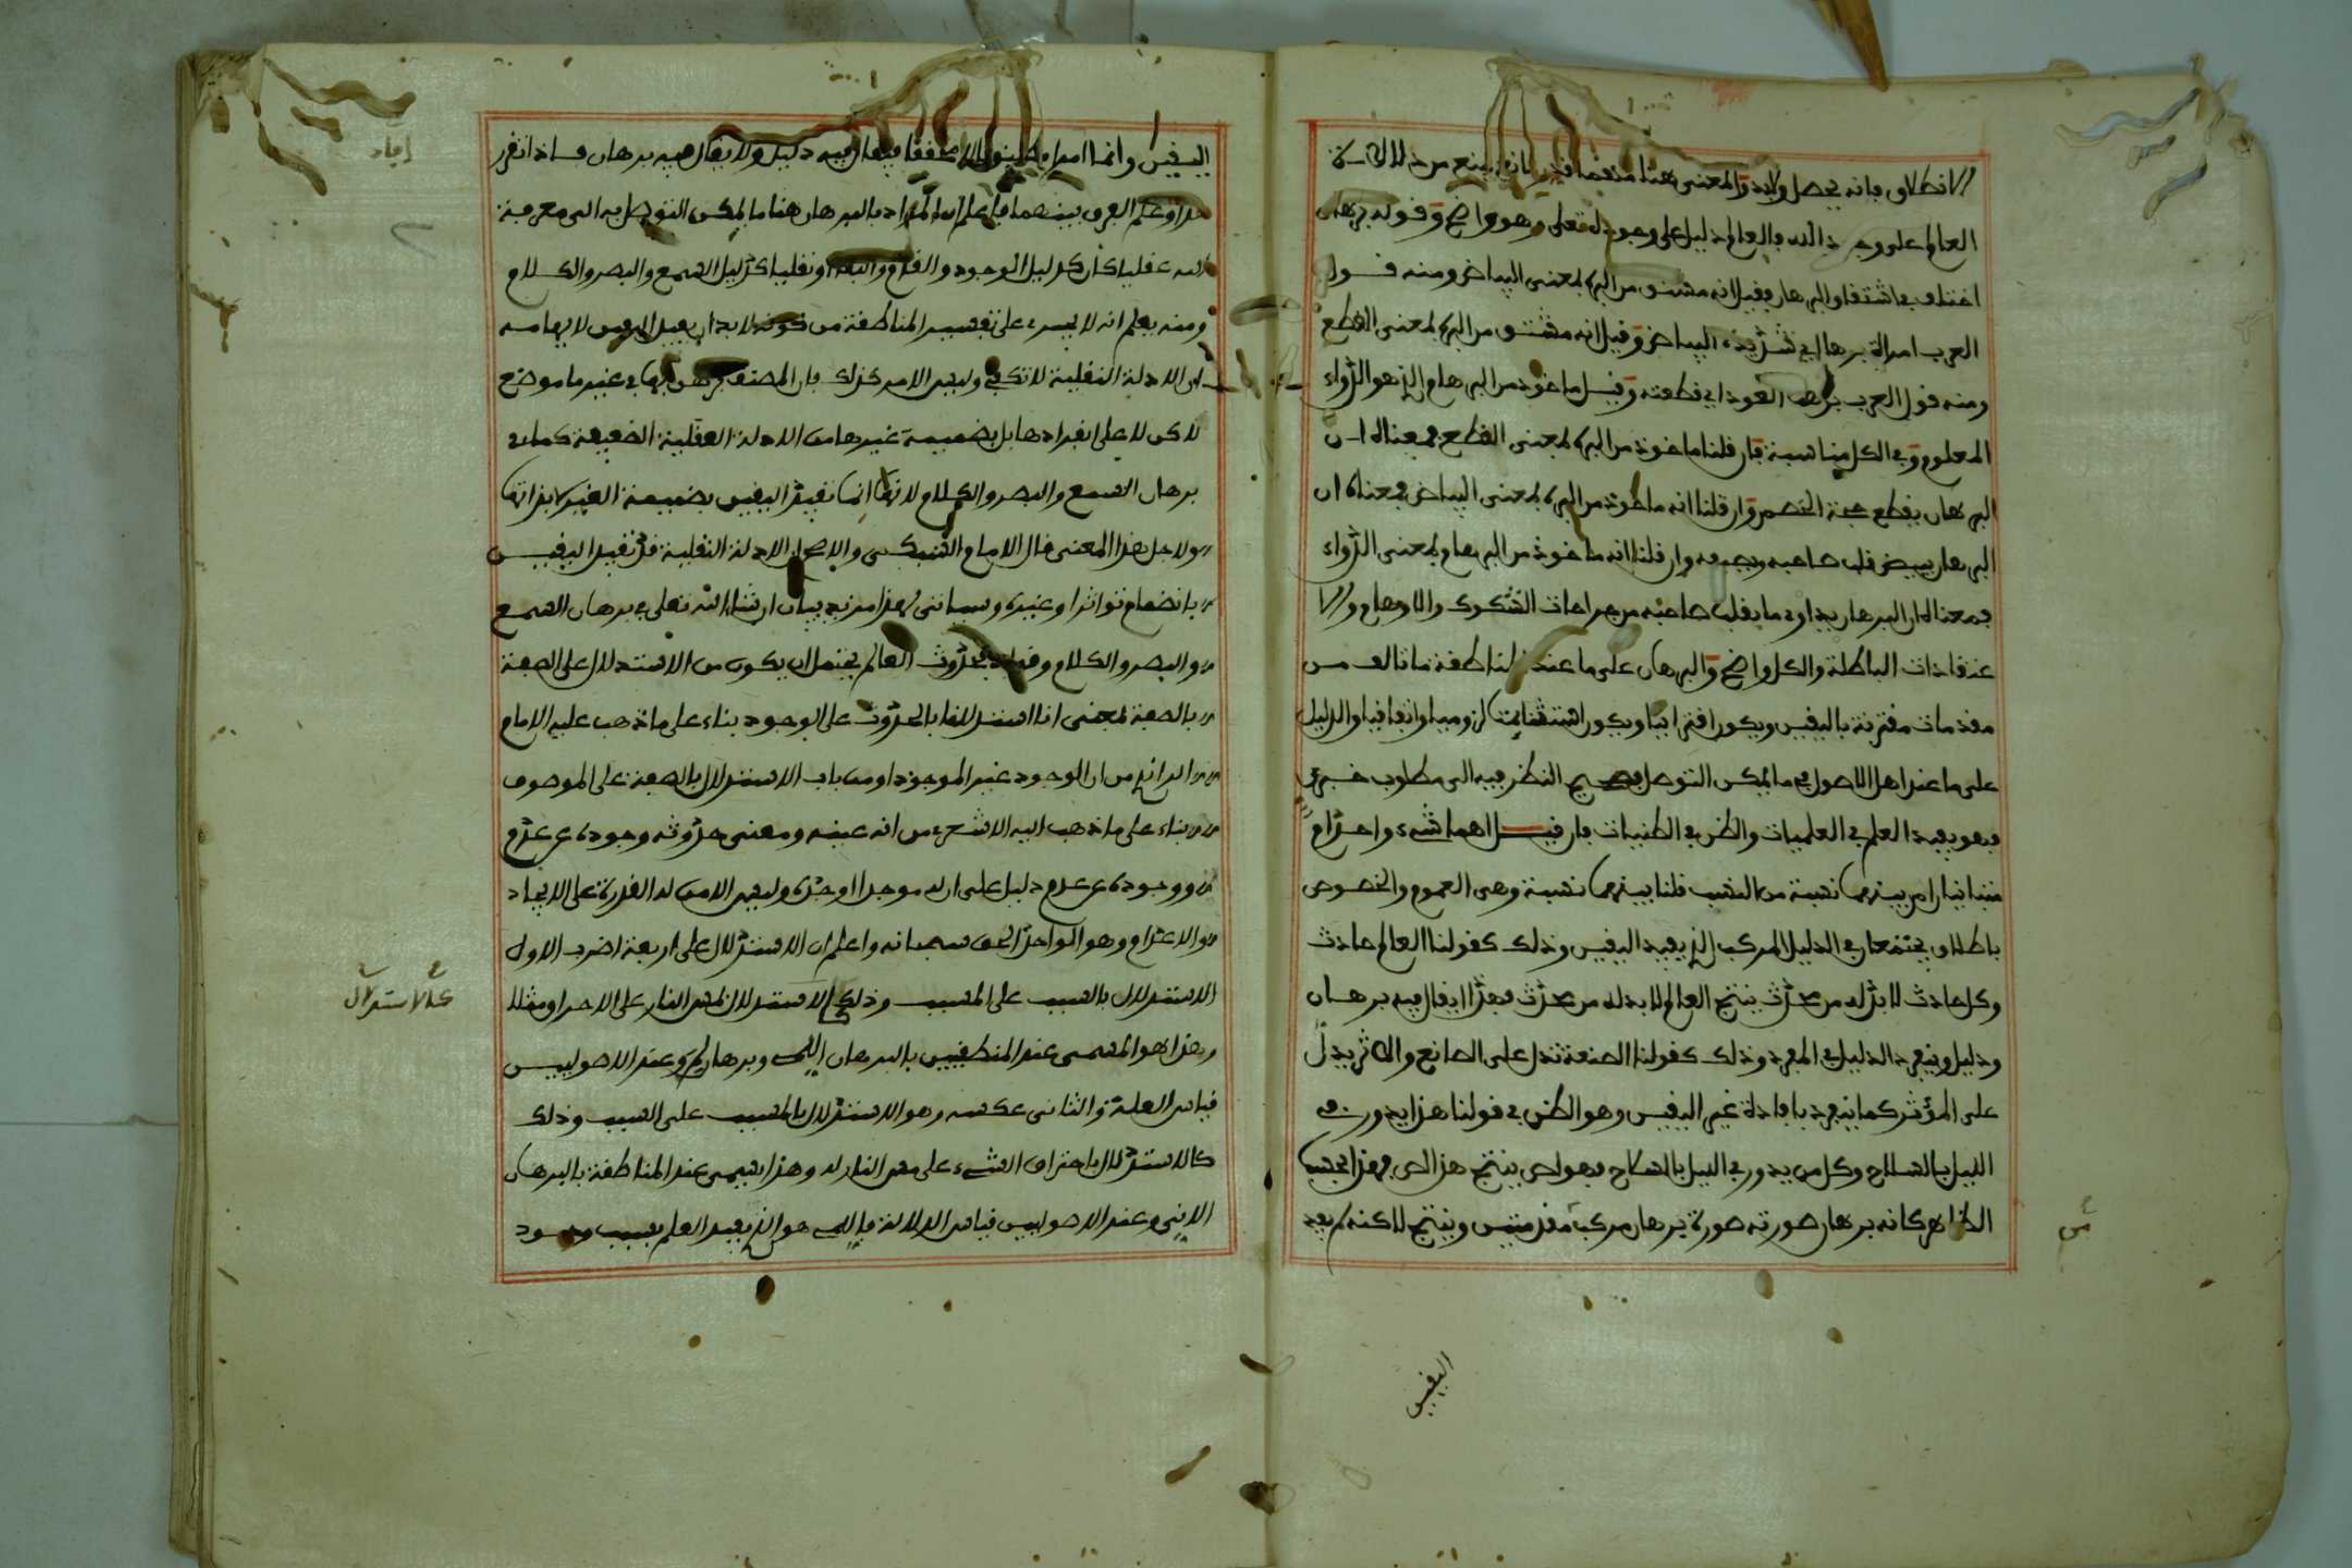 الانطلاق فإنه يحصل ولابد والمعنى هنا
العالم على وجود الله فالعالم دليل على وجود الله تعلى وهو واضح وقوله برهان
اختلف في اشتقاق البرهان فقيل انه مشتق من البره لمعنى البياض ومنه قول
العرب امراة برها اي شديدة البياض وقيل انه مشتق من البره لمعنى القطع
ومنه قول العرب بره العود اي قطعته وقيل ماخوذ من البرهام الذ هو الدواء
المعلوم وفي الكل مناسبة فان قلنا ماخوذ من البره لمعنى القطع فمعناه ان
البرهان يقطع حجة الخصم وان قلنا انه ماخوذ من البره لمعنى البياض فمعناه ان
البرهان يبيض قلب صاحبه ويصفيه وان قلنا انه ماخوذ من البرهام لمعنى الدواء
فمعناه ان البرهان يداوي ما بقلب صاحبه من جراحات الشكوك والاوهام والا
عتقادات الباطلة والكل واضح والبرهان على ما عند المناطقة ما تالف من
مقدمات مقترنة باليقين ويكون اقترانيا ويكون استثنائيا لزوميا واتفاقيا والدليل
على ما عند اهل الاصول هو ما يمكن التوصل بصحيح النظر فيه الى مطلوب خبري
فهو يفيد العلم في العلميات والظن في الظنيات فان قيل اهما شيء واحد ام
متباينان ام بينهما نسبة من النسب قلنا بينهما نسبة وهي العموم والخصوص
باطلاق يجتمعان في الدليل المركب الذ يفيد اليقين وذلك كقولنا العالم حادث
وكل حادث لا بد له من محدث ينتج العالم لا بد له من محدث فهذا يقال فيه برهان
ودليل وينفرد الدليل في المفرد وذلك كقولنا الصنعة تدل على الصانع والاثر يدل
على المؤثر كما ينفرد بافادة غير اليقين وهو الظن في قولنا هذا يدور في
الليل بالسلاح وكل من يدور في الليل بالسلاح فهو لص ينتج هذا لص فهذا بحسب
الظاهر كانه برهان صورته صورة برهان مركب مقدمتين وينتج لاكنه لم يفد
اليقين
اليقين وانما افاد فيقال فيه دليل ولا يقال فيه برهان فاذا تقرر
هذا وعلم الفرق بينهما فاعلم ان المراد بالبرهان هنا ما يمكن التوصل به الى معرفة
الله عقليا كان كدليل الوجود والقدم والبقاء او نقليا كدليل السمع والبصر والكلام
ومنه يعلم انه لا يسري على تفسير المناطقة من كونه لا بد ان يفيد اليقين لايهامه
ان الادلة النقلية لا تكفي وليس الامر كذلك فان المصنف برهن بها في غير ما موضع
لاكن لا على انفرادها بل بضميمة غيرها من الادلة العقلية الضعيفة كما في
برهان السمع والبصر والكلام لانها انما تفيد اليقين بضميمة الغير لا بذاتها
ولاجل هذا المعنى قال الامام السبكي والاصل الادلة النقلية قد تفيد اليقين
بانضمام تواترا وغيره وسياتي لهذا مزيد بيان ان شاء الله تعلى في برهان السمع
والبصر والكلام وقوله بحدوث العالم يحتمل ان يكون من الاستدلال على الصفة
بالصفة لمعنى انا استدللنا بالحدوث على الوجود بناء على ما ذهب عليه الامام
الرازي من ان الوجود غير الموجود او من باب الاستدلال بالصفة على الموصوف
بناء على ما ذهب اليه الاشعري من انه عينه ومعنى حدوثه وجوده عن عدم
ووجوده عن عدم دليل على ان له موجدا اوجده وليس الا من له القدرة على الايجاد
والاعدام وهو الواحد الحق سبحانه واعلم ان الاستدلال على اربعة اضرب الاول
الاستدلال بالسبب على المسبب وذلك كالاستدلال بمس النار على الاحراق مثلا
وهذا هو المسمى عند المنطقيين بالبرهان اللمي وبرهان لم وعند الاصوليين
قياس العلة والثاني عكسه وهو الاستدلال بالمسبب على السبب وذلك
كالاستدلال باحتراق الشيء على مس النار له وهذا يسمى عند المناطقة بالبرهان
الاني وعند الاصوليين قياس الدلالة فاللمي هو الذ يفيد العلم بسبب وجود
افاد
على الاستدلال